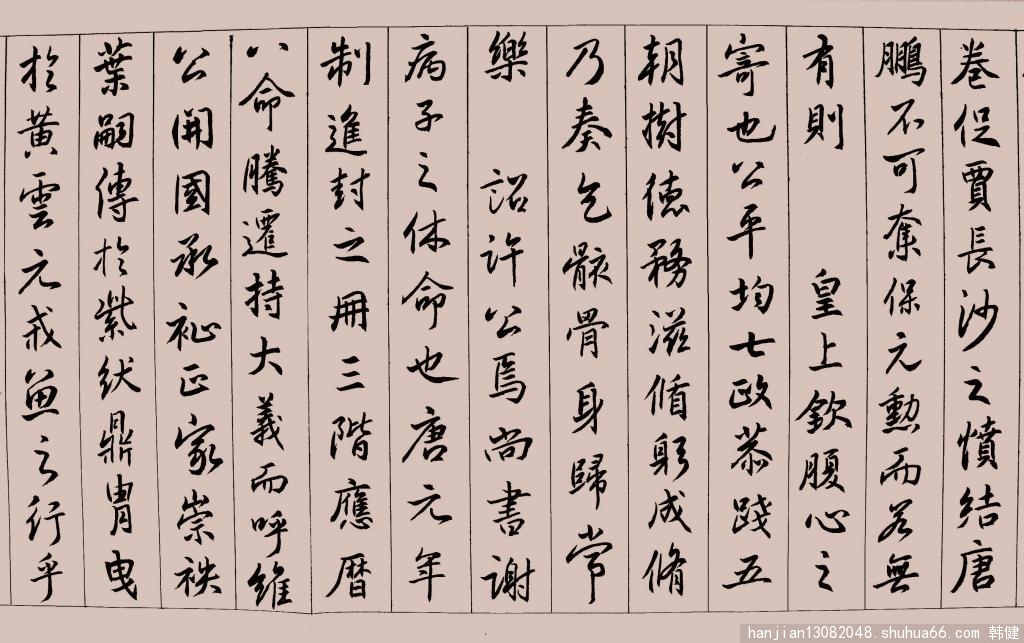 卷促賈長沙之憤結唐
鵬不可奪保元勳而若無
有則 皇上欽腹心之
寄也公平均七政恭踐五
朝樹德務滋脩躬成脩
乃奏乞骸骨身歸常
樂 詔許公焉尚書謝
病子之休命也唐元年
制進封之冊三階應曆
八命騰遷持大義而呼維
公開國承祉正家崇袟
葉嗣傳於紫紱鼎胄曳
於黃雲元戎啟行乎
hanjian13082048.shuhua66.com 韩健